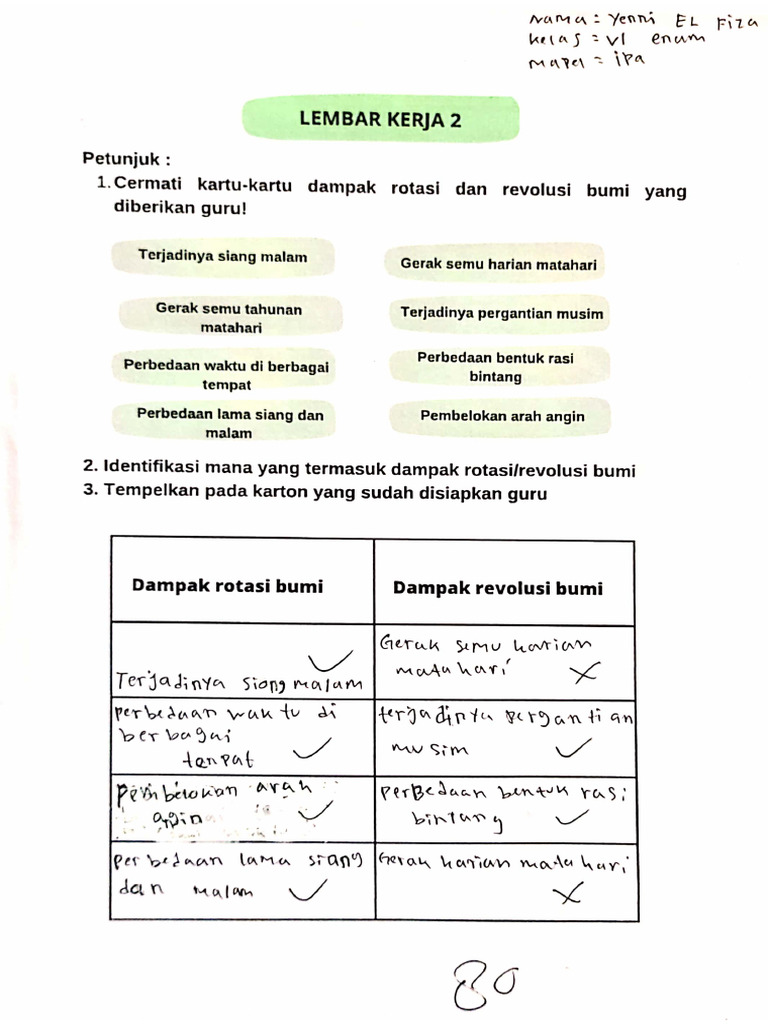 Nama = Yenni EL Fiza
kelas = VI enam
mapel = ipa
LEMBAR KERJA 2
Petunjuk :
1. Cermati kartu-kartu dampak rotasi dan revolusi bumi yang
diberikan guru!
Terjadinya siang malam
Gerak semu harian matahari
Gerak semu tahunan
matahari
Terjadinya pergantian musim
Perbedaan waktu di berbagai
tempat
Perbedaan bentuk rasi
bintang
Perbedaan lama siang dan
malam
Pembelokan arah angin
2. Identifikasi mana yang termasuk dampak rotasi/revolusi bumi
3. Tempelkan pada karton yang sudah disiapkan guru
Dampak rotasi bumi
Dampak revolusi bumi
Terjadinya siang malam
Gerak semu harian
mata hari
perbedaan wak tu di
berbagai
tempat
terjadinya pergantian
musim
Pembelokan arah
angin
perBedaan bentuk rasi
bintang
perbedaan lama siang
dan malam
Gerak harian mata hari
80